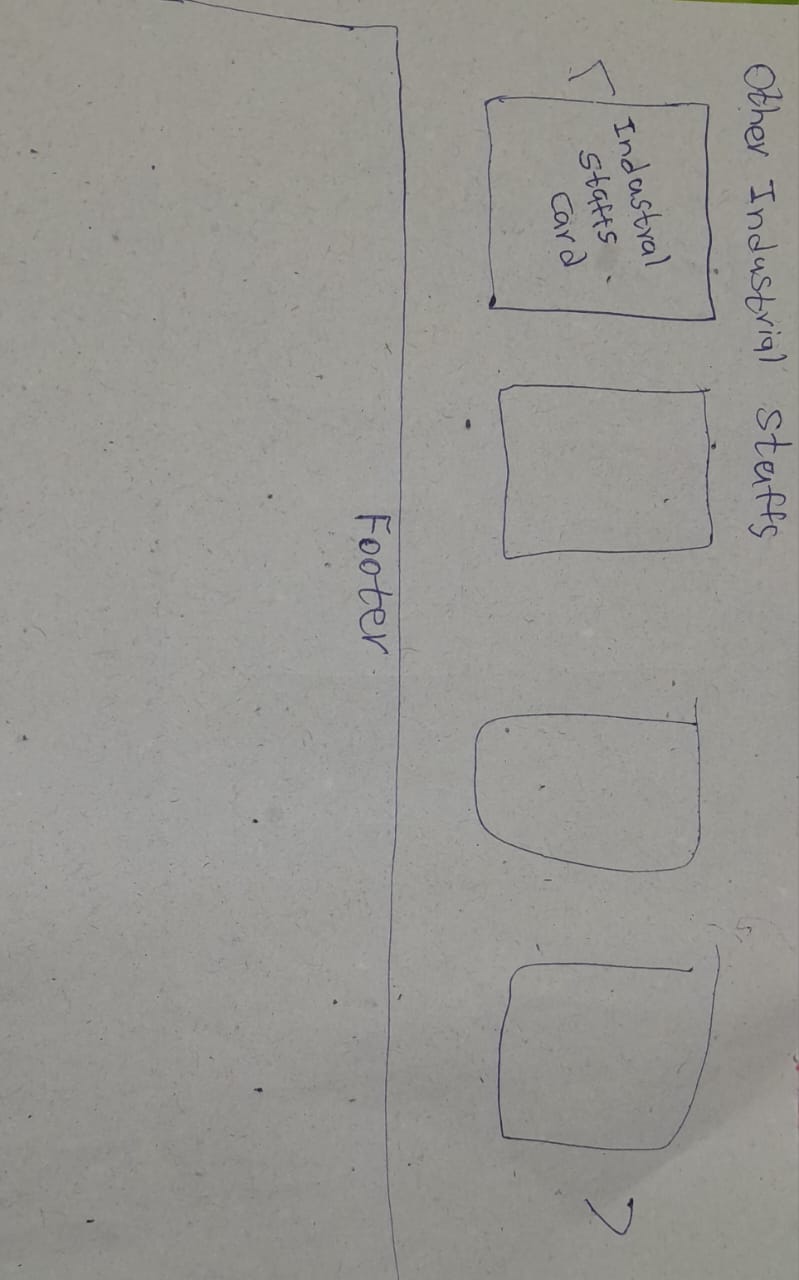 Other Industrial Staffs
Indastral
Staffs
Card
Footer